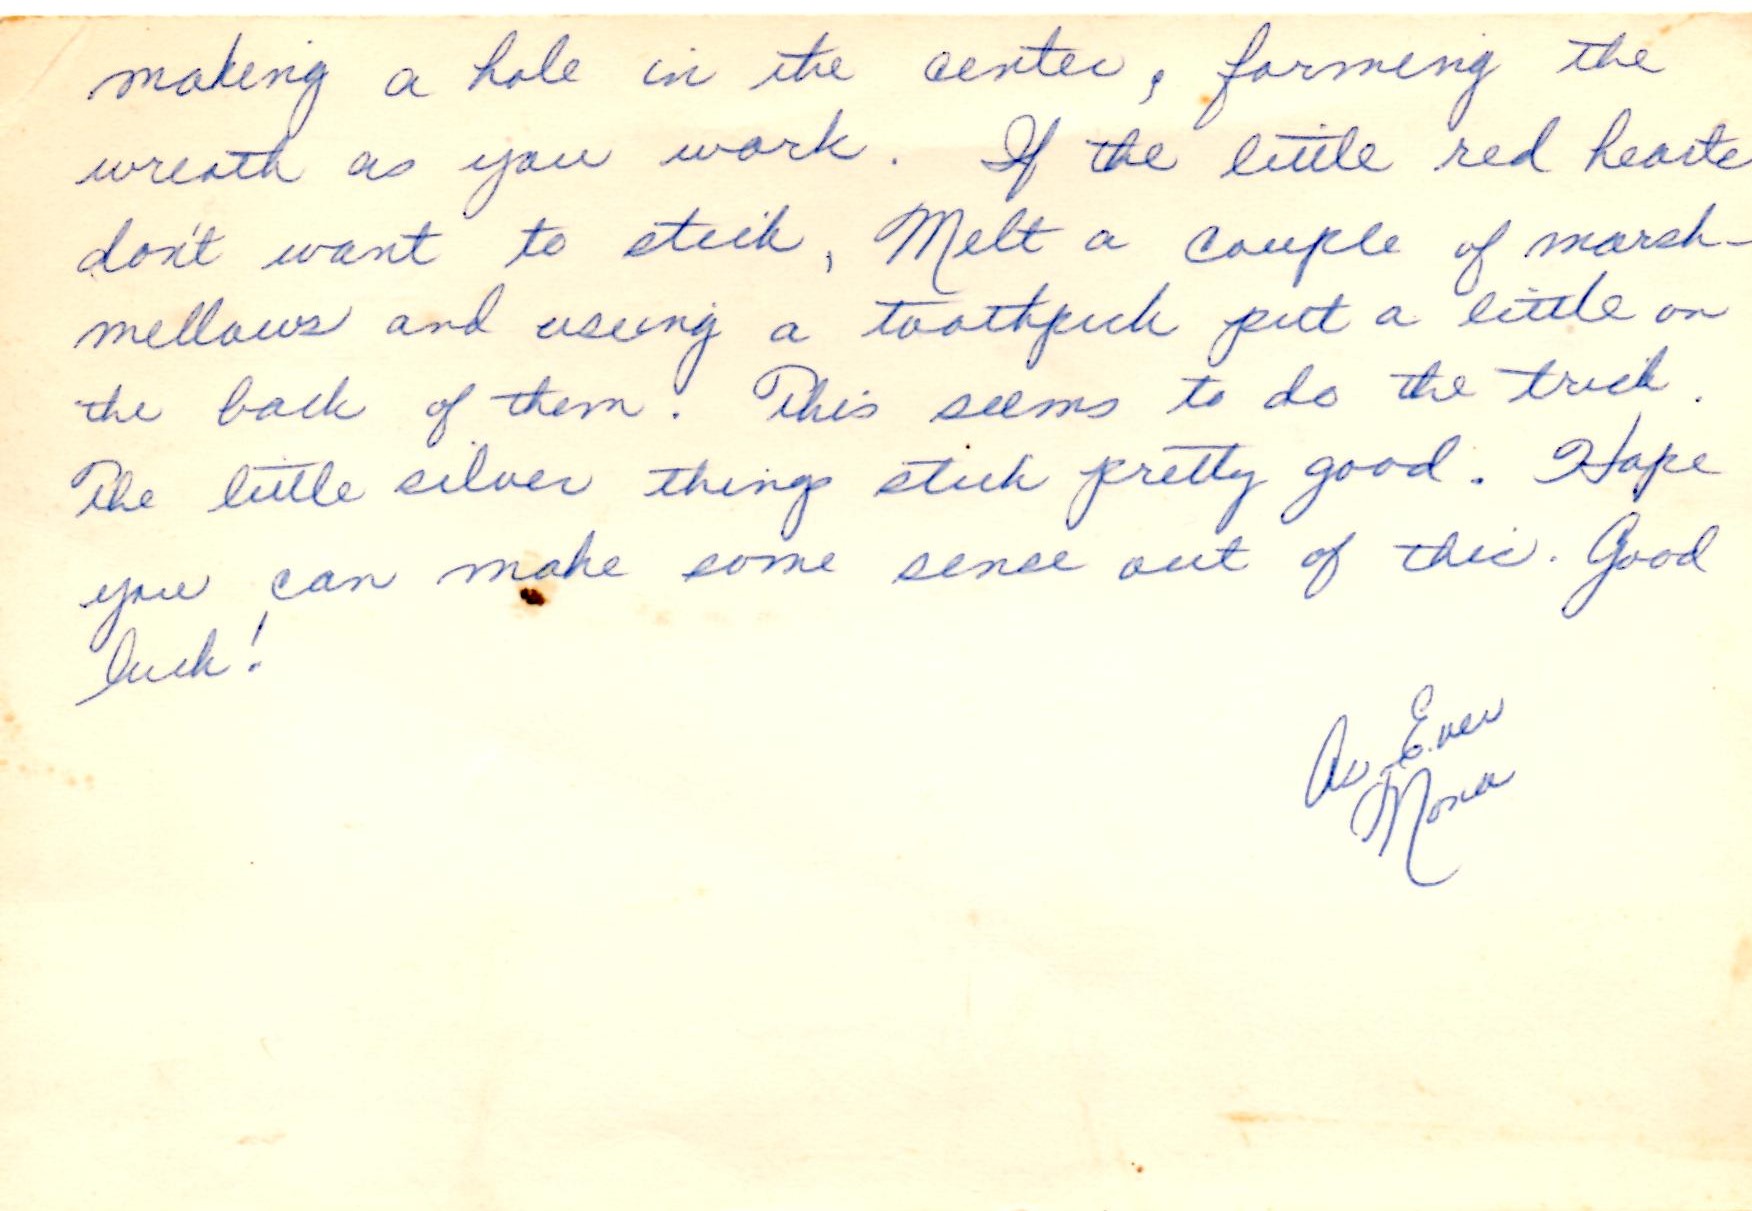 making a hole in the center, forming the
wreath as you work. If the little red hearts
don't want to stick, Melt a couple of marsh-
mellows and using a toothpick put a little on
the back of them. This seems to do the trick.
The little silver things stick pretty good. Hope
you can make some sense out of this. Good
luck!
As Ever
Mona